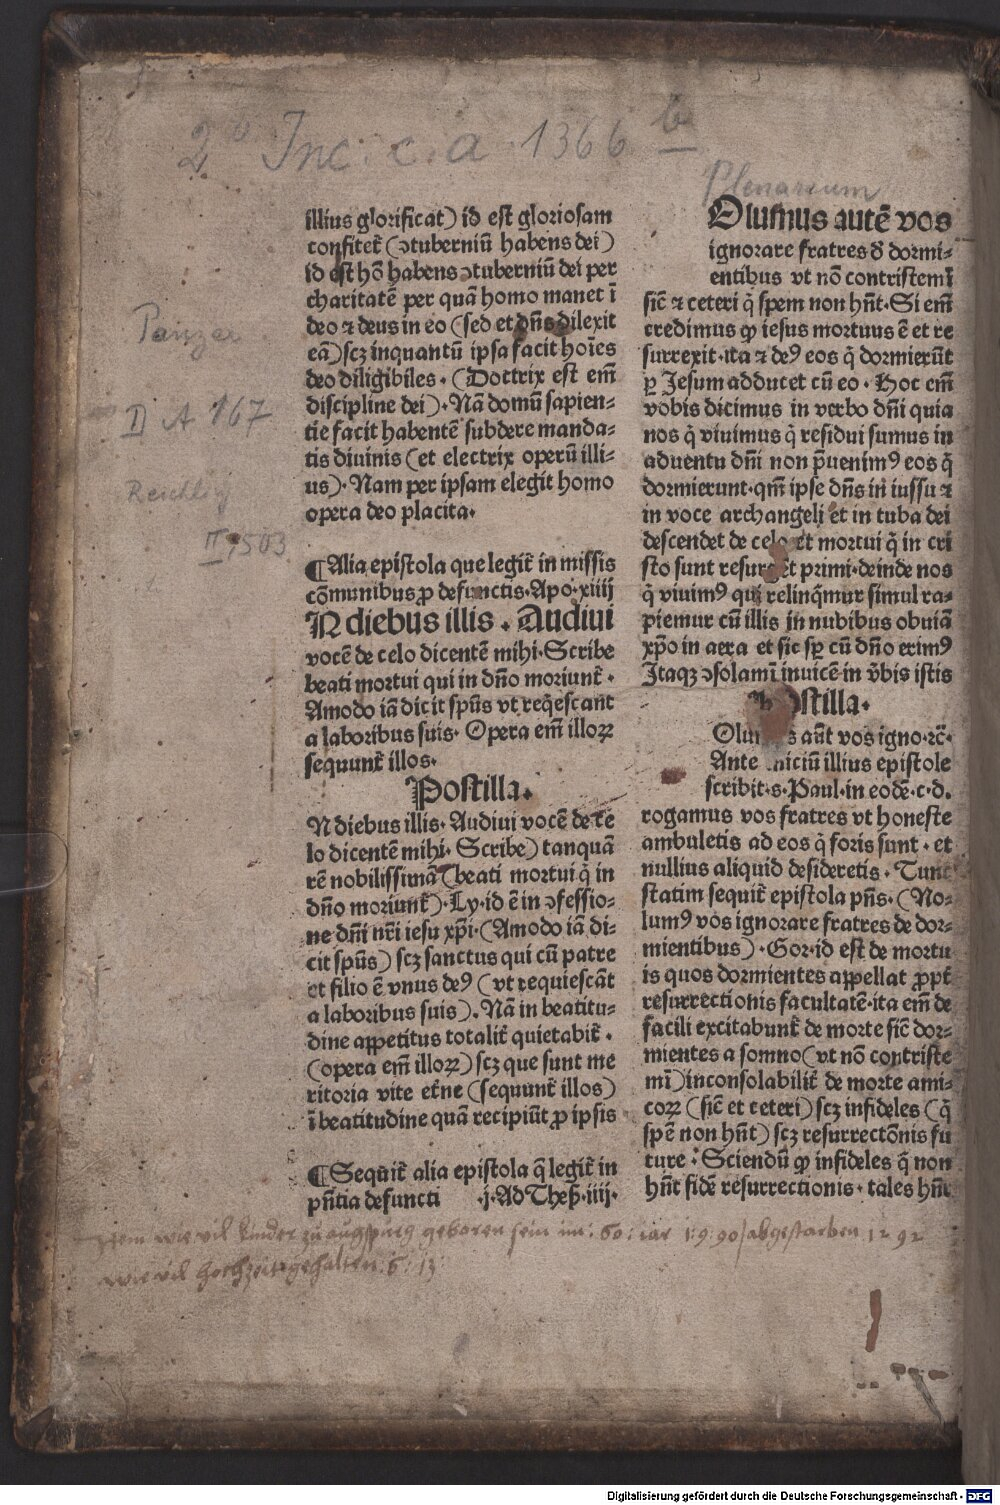 2° Inc. c. a. 1366 b
Plenarium
Panzer
D A 167
Reichling
II, 1503
illius glorificat) id est gloriosam
confitet̄ (ↄtuberniū habens dei)
id est hō habens ↄtuberniū dei per
charitatē per quā homo manet ī
deo ⁊ deus in eo (sed et dn̄s dilexit
eā) scꝫ inquantū ipsa facit hoīes
deo diligibiles. (Doctrix est em̄
discipline dei). Nā domū sapien⸗
tie facit habentē subdere manda⸗
tis diuinis (et electrix operū illi⸗
us). Nam per ipsam elegit homo
opera deo placita.
¶ Alia epistola que legit̄ in missis
cōmunibus ꝓ defunctis. Apo. xiiij
N diebus illis. Audiui
vocē de celo dicentē mihi. Scribe
beati mortui qui in dn̄o moriunt̄.
Amodo iā dicit spūs vt req̄escant
a laboribus suis. Opera em̄ illoꝝ
sequunt̄ illos.
Postilla.
N diebus illis. Audiui vocē de ce
lo dicentē mihi. Scribe) tanquā
rē nobilissimā (beati mortui q̄ in
dn̄o moriunt̄). Ly. id ē in ↄfessio⸗
ne dn̄i nr̄i iesu xp̄i. (Amodo iā di⸗
cit spūs) scꝫ sanctus qui cū patre
et filio ē vnus deꝰ (vt requiescāt
a laboribus suis). Nā in beatitu⸗
dine appetitus totalit̄ quietabit̄.
(opera em̄ illoꝝ) scꝫ que sunt me
ritoria vite et̄ne (sequunt̄ illos)
ī beatitudine quā recipiūt ꝓ ipsis
¶ Sequit̄ alia epistola q̄ legit̄ in
pn̄tia defuncti .j. Ad Theß. iiij.
Olumus autē vos
ignorare fratres đ dormi⸗
entibus vt nō contristemī
sic̄ ⁊ ceteri q̄ spem non hn̄t. Si em̄
credimus ꝙ iesus mortuus ē et re
surrexit. ita ⁊ deꝰ eos q̄ dormierūt
ꝑ Jesum adducet cū eo. Hoc em̄
vobis dicimus in verbo dn̄i quia
nos q̄ viuimus q̄ residui sumus in
aduentu dn̄i non p̄uenimꝰ eos q̄
dormierunt. qm̄ ipse dn̄s in iussu ⁊
in voce archangeli et in tuba dei
descendet de celo et mortui q̄ in cri
sto sunt resurget primi. deinde nos
q̄ viuimꝰ qui relinq̄mur simul ra⸗
piemur cū illis in nubibus obuiā
xp̄o in aera et sic sp̄ cū dn̄o erimꝰ
Itaqꝫ ↄsolamī inuicē in v̄bis istis
Postilla.
Olumus aūt vos igno. ⁊c̄.
Ante iniciū illius epistole
scribit. s. Paul. in eodē. c. d.
rogamus vos fratres vt honeste
ambuletis ad eos q̄ foris sunt. et
nullius aliquid desideretis. Tunc
statim sequit̄ epistola pn̄s. (No⸗
lumꝰ vos ignorare fratres de dor⸗
mientibus). Gor. id est de mortu
is quos dormientes appellat ꝓpt̄
resurrectionis facultatē. ita em̄ de
facili excitabunt̄ de morte sic̄ dor⸗
mientes a somno (vt nō contriste
mī) inconsolabilit̄ de morte ami⸗
coꝝ (sic̄ et ceteri) scꝫ infideles (q̄
spē non hn̄t) scꝫ resurrectōnis fu
ture. Sciendū ꝙ infideles q̄ non
hn̄t fidē resurrectionis. tales hn̄t
Item wie vil kinder zu augspurg geboren sein im: 60: iar 1:9:90/ abgestarben 1292
wie vil hochzeit gehalten: 6:13:
Digitalisierung gefördert durch die Deutsche Forschungsgemeinschaft - DFG